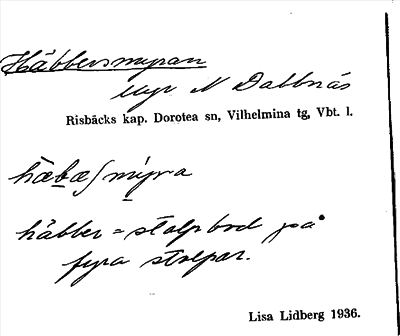 Häbbersmyran
myr N Dabbnäs
Risbäcks kap. Dorotea sn, Vilhelmina tg, Vbt. l.
hæbæʃmýra
häbber = stolpbod på
fyra stolpar.
Lisa Lidberg 1936.